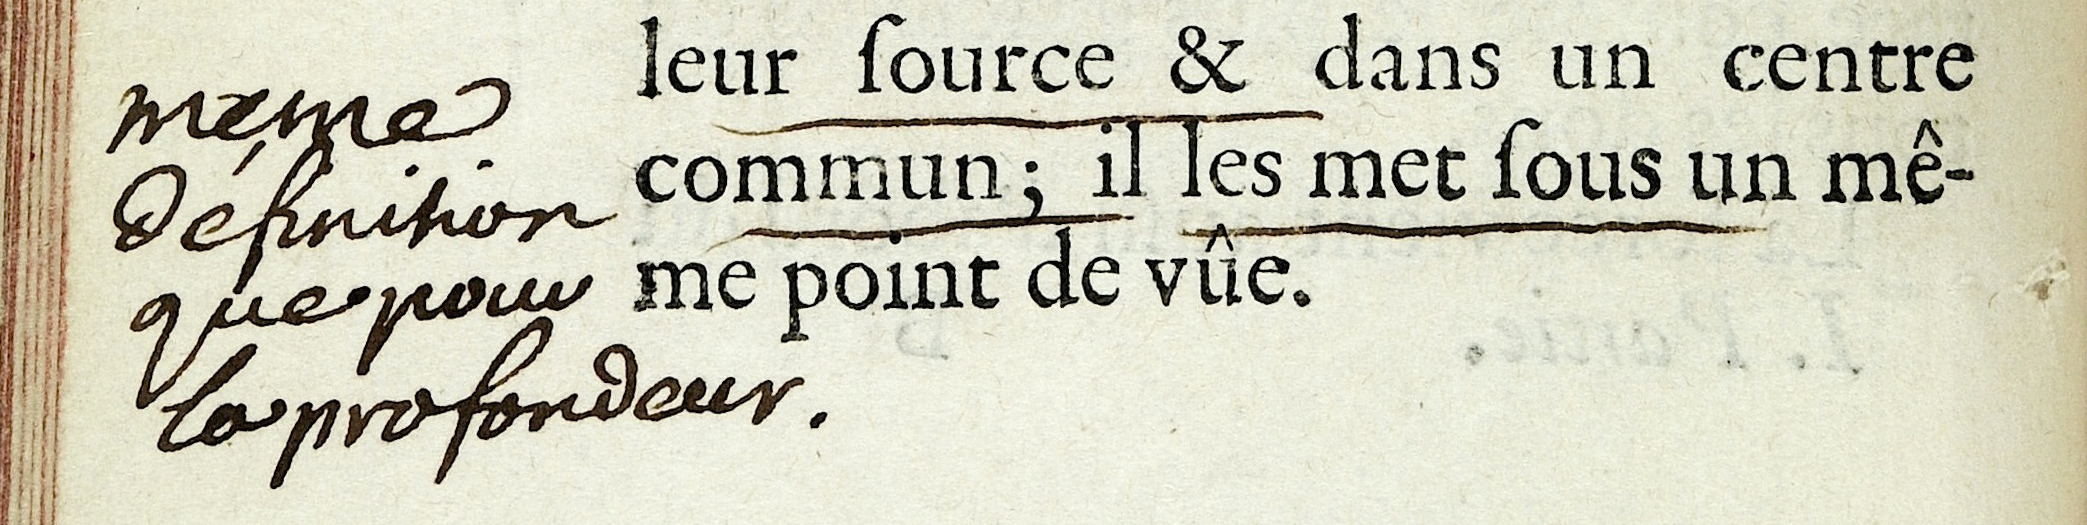 leur ſource & dans un centre
commun; il les met ſous un mê-
me point de vûe.
même
définition
que pour
la profondeur.